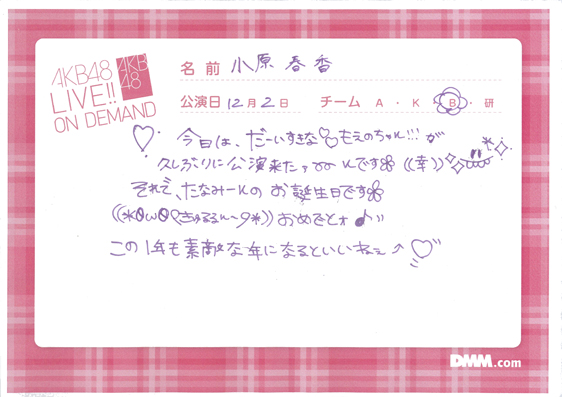 AKB48
LIVE!!
ON DEMAND
AKB
48
名前 小原春香
公演日 12月2日 チーム A・K・B・研
今日は、だーいすきな♡もえのちゃん!!!が
久しぶりに公演来たァーんです ((幸))
それで、たなみーんのお誕生日です
おめでとォ♪
この1年も素敵な年になるといいねェ↗♡
DMM.com